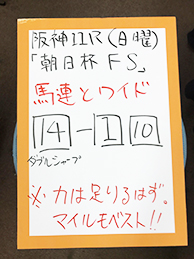 阪神11R(日曜)
「朝日杯FS」
馬連とワイド
14-1 10
ダブルシャープ
※力は足りるはず。
マイルもベスト!!